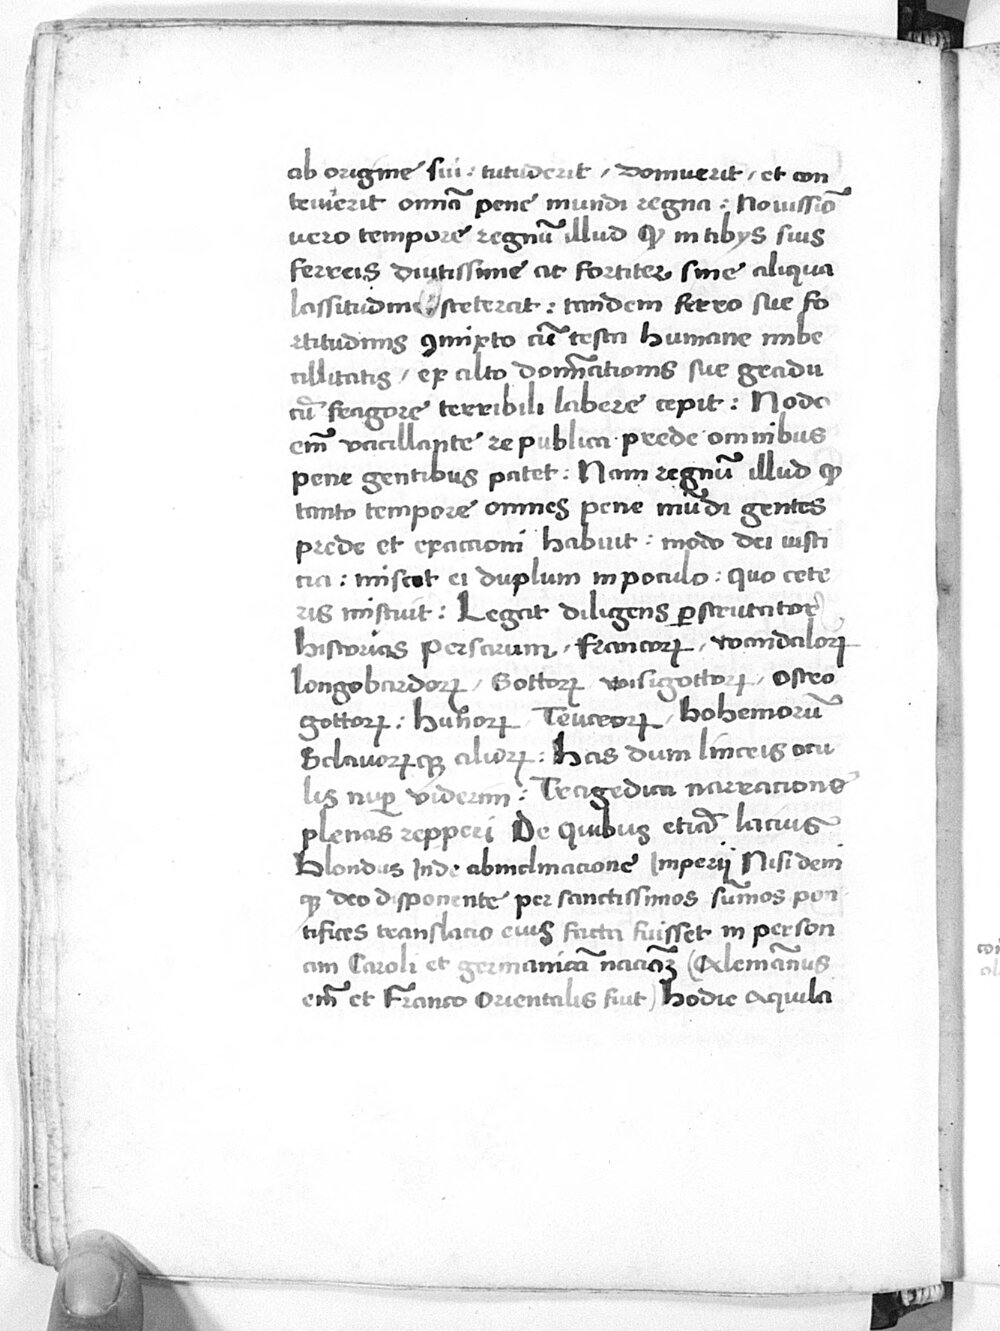 ab origine sui : tutuderit / domuerit / et con
triuerit omīa pene mundi regna : Nouissiō
uero tempore regnū illud qꝫ in tibys suis
ferreis diutissime ac fortiter sine aliqua
lassitudine steterat : tandem ferro sue fo
rtitudinis ꝯmixto cū testa humane imbe
cillitatis / ex alto domīationis sue gradu
cū fragore terribili labere cepit : Modo
em̄ vacillante re publica prede omnibus
pene gentibus patet : Nam regnū illud qꝫ
tanto tempore omnes pene mūdi gentes
prede et exactioni habuit : modo dei iusti
cia : miscet ei duplum in poculo : quo cete
ris miscuit : Legat diligens ꝑscrutator
historias Persarum / francoꝝ / vvandaloꝝ
longobardoꝝ / Gottoꝝ visigottoꝝ / Ostro
gottoꝝ : hūnoꝝ / Teucroꝝ / bohemorū
Sclauoꝝqꝫ alioꝝ : has dum linceis ocu
lis nuꝑ viderim : Tragedica narracione
plenas repperi De quibus etiā lacius
blondus Inde ab inclinacione Imperij Nisi deni
qꝫ deo disponente per sanctissimos sūmos pon
tifices translacio eius facta fuisset in person
am Caroli et germanicā nacioꝫ (Alemānus
em̄ et Franco Orientalis fiut) hodie aquila